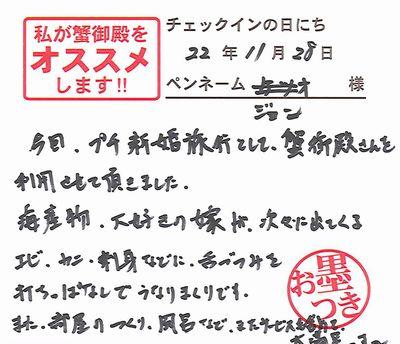 私が蟹御殿を
オススメ
します!!
チェックインの日にち
22 年 11 月 28 日
ペンネーム 様
ジョン
今日、プチ新婚旅行として、蟹御殿さんを
利用させて頂きました。
海産物、大好きの嫁が、次々に出てくる
エビ、カニ、刺身などに、舌づつみを
打ちっぱなしでうなりまくりです。
また、部屋のつくり、風呂など、またサービスも
お墨つき